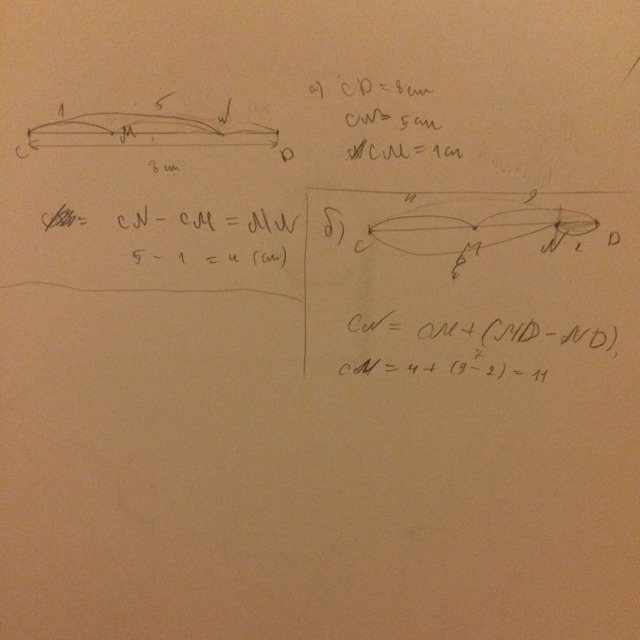 1 5 N
C M D
8 см
а) CD = 8 см
CN = 5 см
CM = 1 см
CN - CM = MN
5 - 1 = 4 (см)
б) 4 9
C M N 2 D
CN = CM + (MD - ND)
7
CN = 4 + (9 - 2) = 11